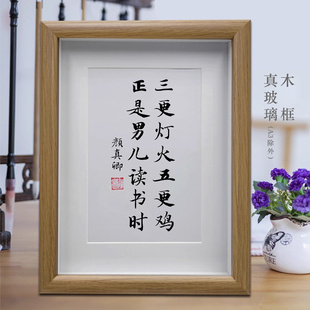 三更灯火五更鸡
正是男儿读书时
颜真卿
木框
真玻璃
(A3除外)